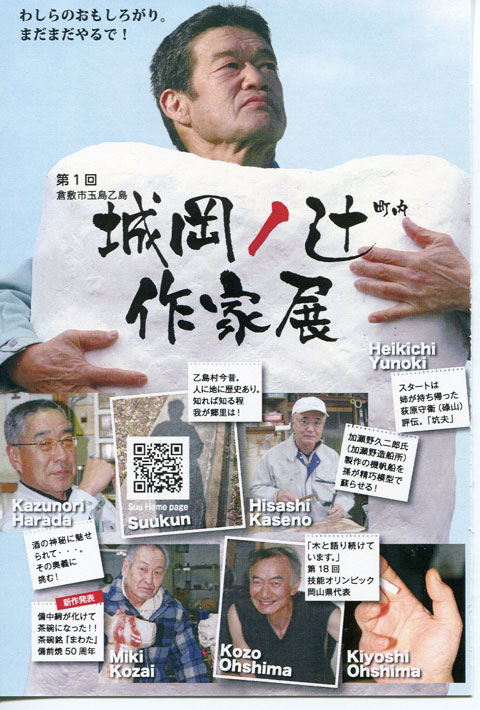 わしらのおもしろがり。
まだまだやるで！
第1回
倉敷市玉島乙島
城岡ノ辻
町内
作家展
Heikichi
Yunoki
スタートは
姉が持ち帰った
荻原守衛（碌山）
評伝。「坑夫」
乙島村今昔。
人に地に歴史あり。
知れば知る程
我が郷里は！
Suu Home page
Suukun
加瀬野久二郎氏
（加瀬野造船所）
製作の機帆船を
孫が精巧模型で
蘇らせる！
Hisashi
Kaseno
Kazunori
Harada
酒の神秘に魅せ
られて・・・。
その奥義に
挑む！
「木と語り続けて
います。」
第18回
技能オリンピック
岡山県代表
新作発表
備中鍋が化けて
茶碗になった！！
茶碗銘『まわた』
備前焼50周年
Miki
Kozai
Kozo
Ohshima
Kiyoshi
Ohshima